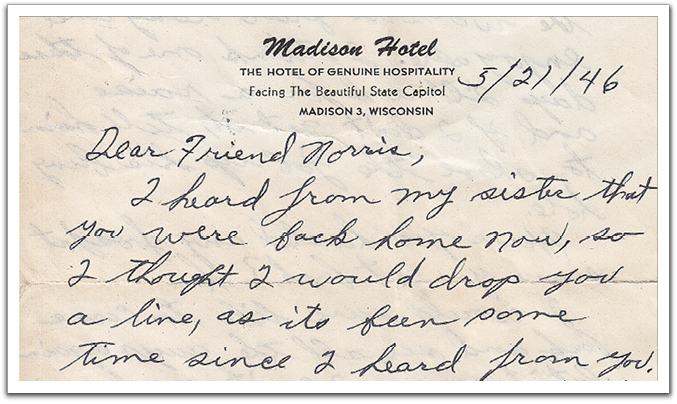 Madison Hotel
THE HOTEL OF GENUINE HOSPITALITY
5/21/46
Facing The Beautiful State Capitol
MADISON 3, WISCONSIN
Dear Friend Norris,
I heard from my sister that
you were back home now, so
I thought I would drop you
a line, as its been some
time since I heard from you.